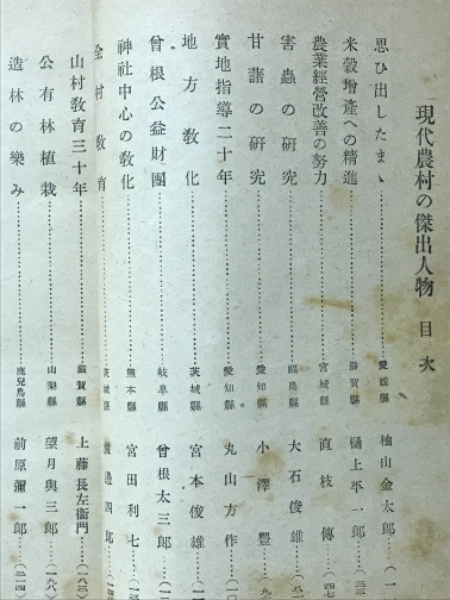 現代農村の傑出人物 目次
思ひ出したまゝ……愛媛縣 柚山金太郎……(一
米穀增產への精進……滋賀縣 樋上平一郎……(三
農業經營改善の努力……宮城縣 直枝傳……(四七
害蟲の硏究……福島縣 大石俊雄……(八一
甘藷の硏究……愛知縣 小澤豐……(九
實地指導二十年……愛知縣 丸山方作……(一〇
地方敎化……茨城縣 宮本俊雄……(一一
曾根公益財團……岐阜縣 曾根太三郎……(一
神社中心の敎化……熊本縣 宮田利七……(一三
全村敎育……茨城縣 渡邊四郎……(一
山村敎育三十年……滋賀縣 上藤長左衞門……(一八三)
公有林植栽……山梨縣 望月與三郎……(一九八)
造林の樂み……鹿兒島縣 前原彌一郎……(二一四)